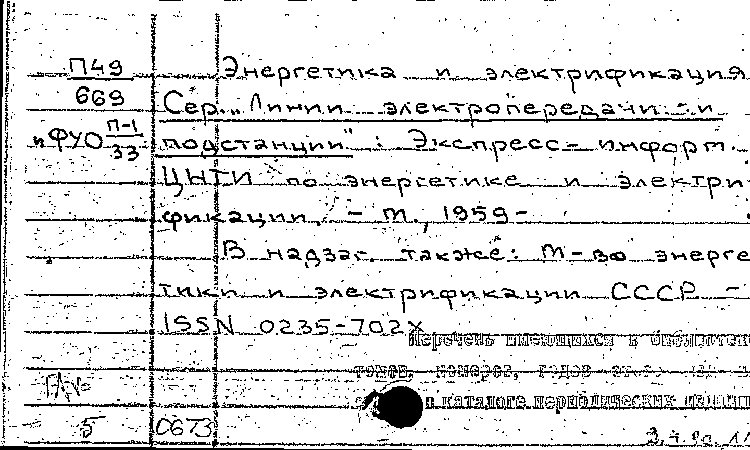 П49 Энергетика и электрификация
669 Сер. "Линии электропередачи и
ФУО П-1/33 подстанции" : Экспресс-информ.
ЦНТИ по энергетике и электри-
фикации. - М., 1959-
В надзаг. также: М-во энерге
тики и электрификации СССР. -
ISSN 0235-702X
Перечень имеющихся в библиотеке
томов, номеров, годов
в каталоге периодических изданий
5 0673